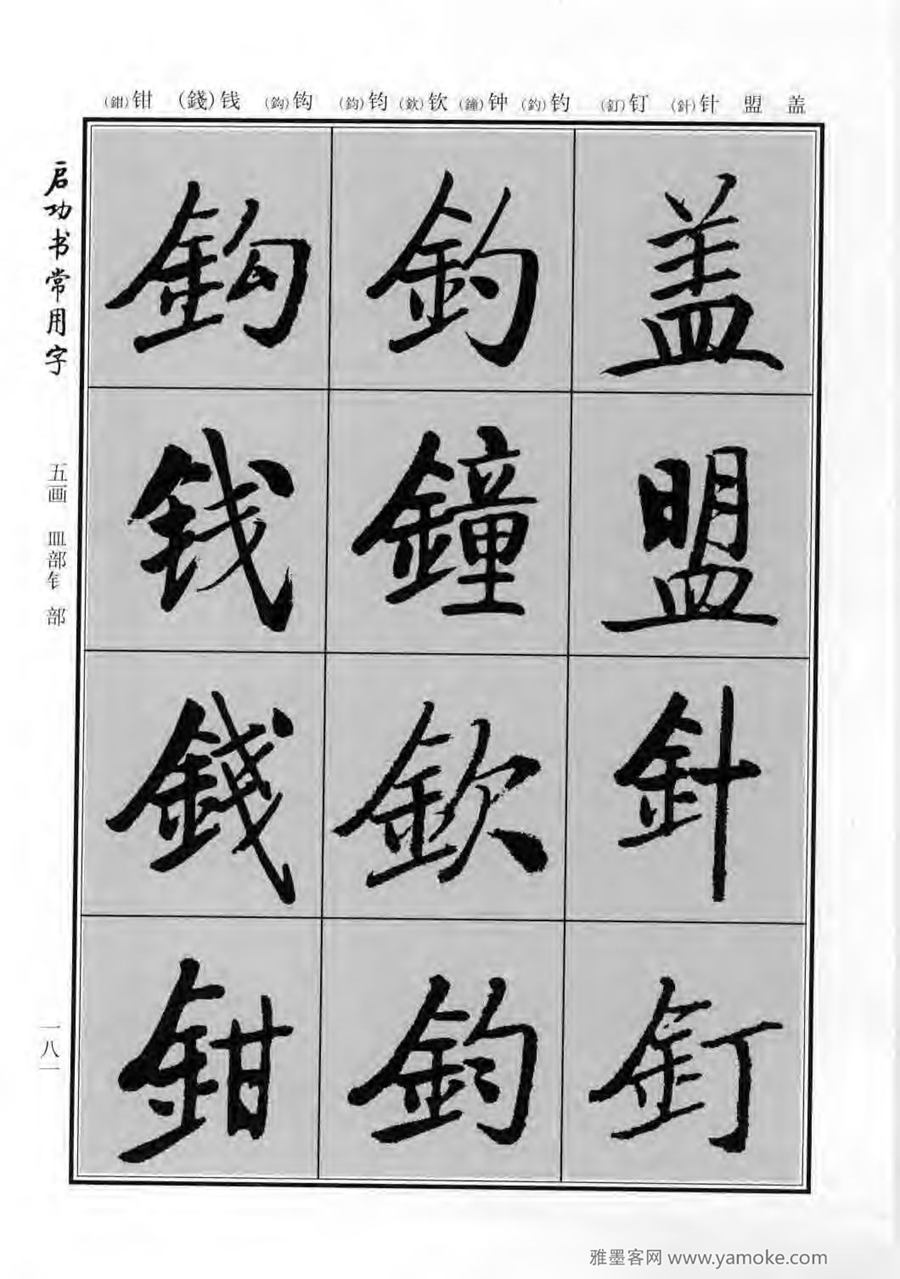 (鉗)钳 (錢)钱 (鈎)钩 (鈞)钧 (欽)钦 (鐘)钟 (釣)钓 (釘)钉 (針)针 盟 盖
启功书常用字
五画 皿部 钅部
一八一
盖
盟
針
釘
釣
鐘
欽
鈞
鈎
钱
錢
鉗
雅墨客网 www.yamoke.com